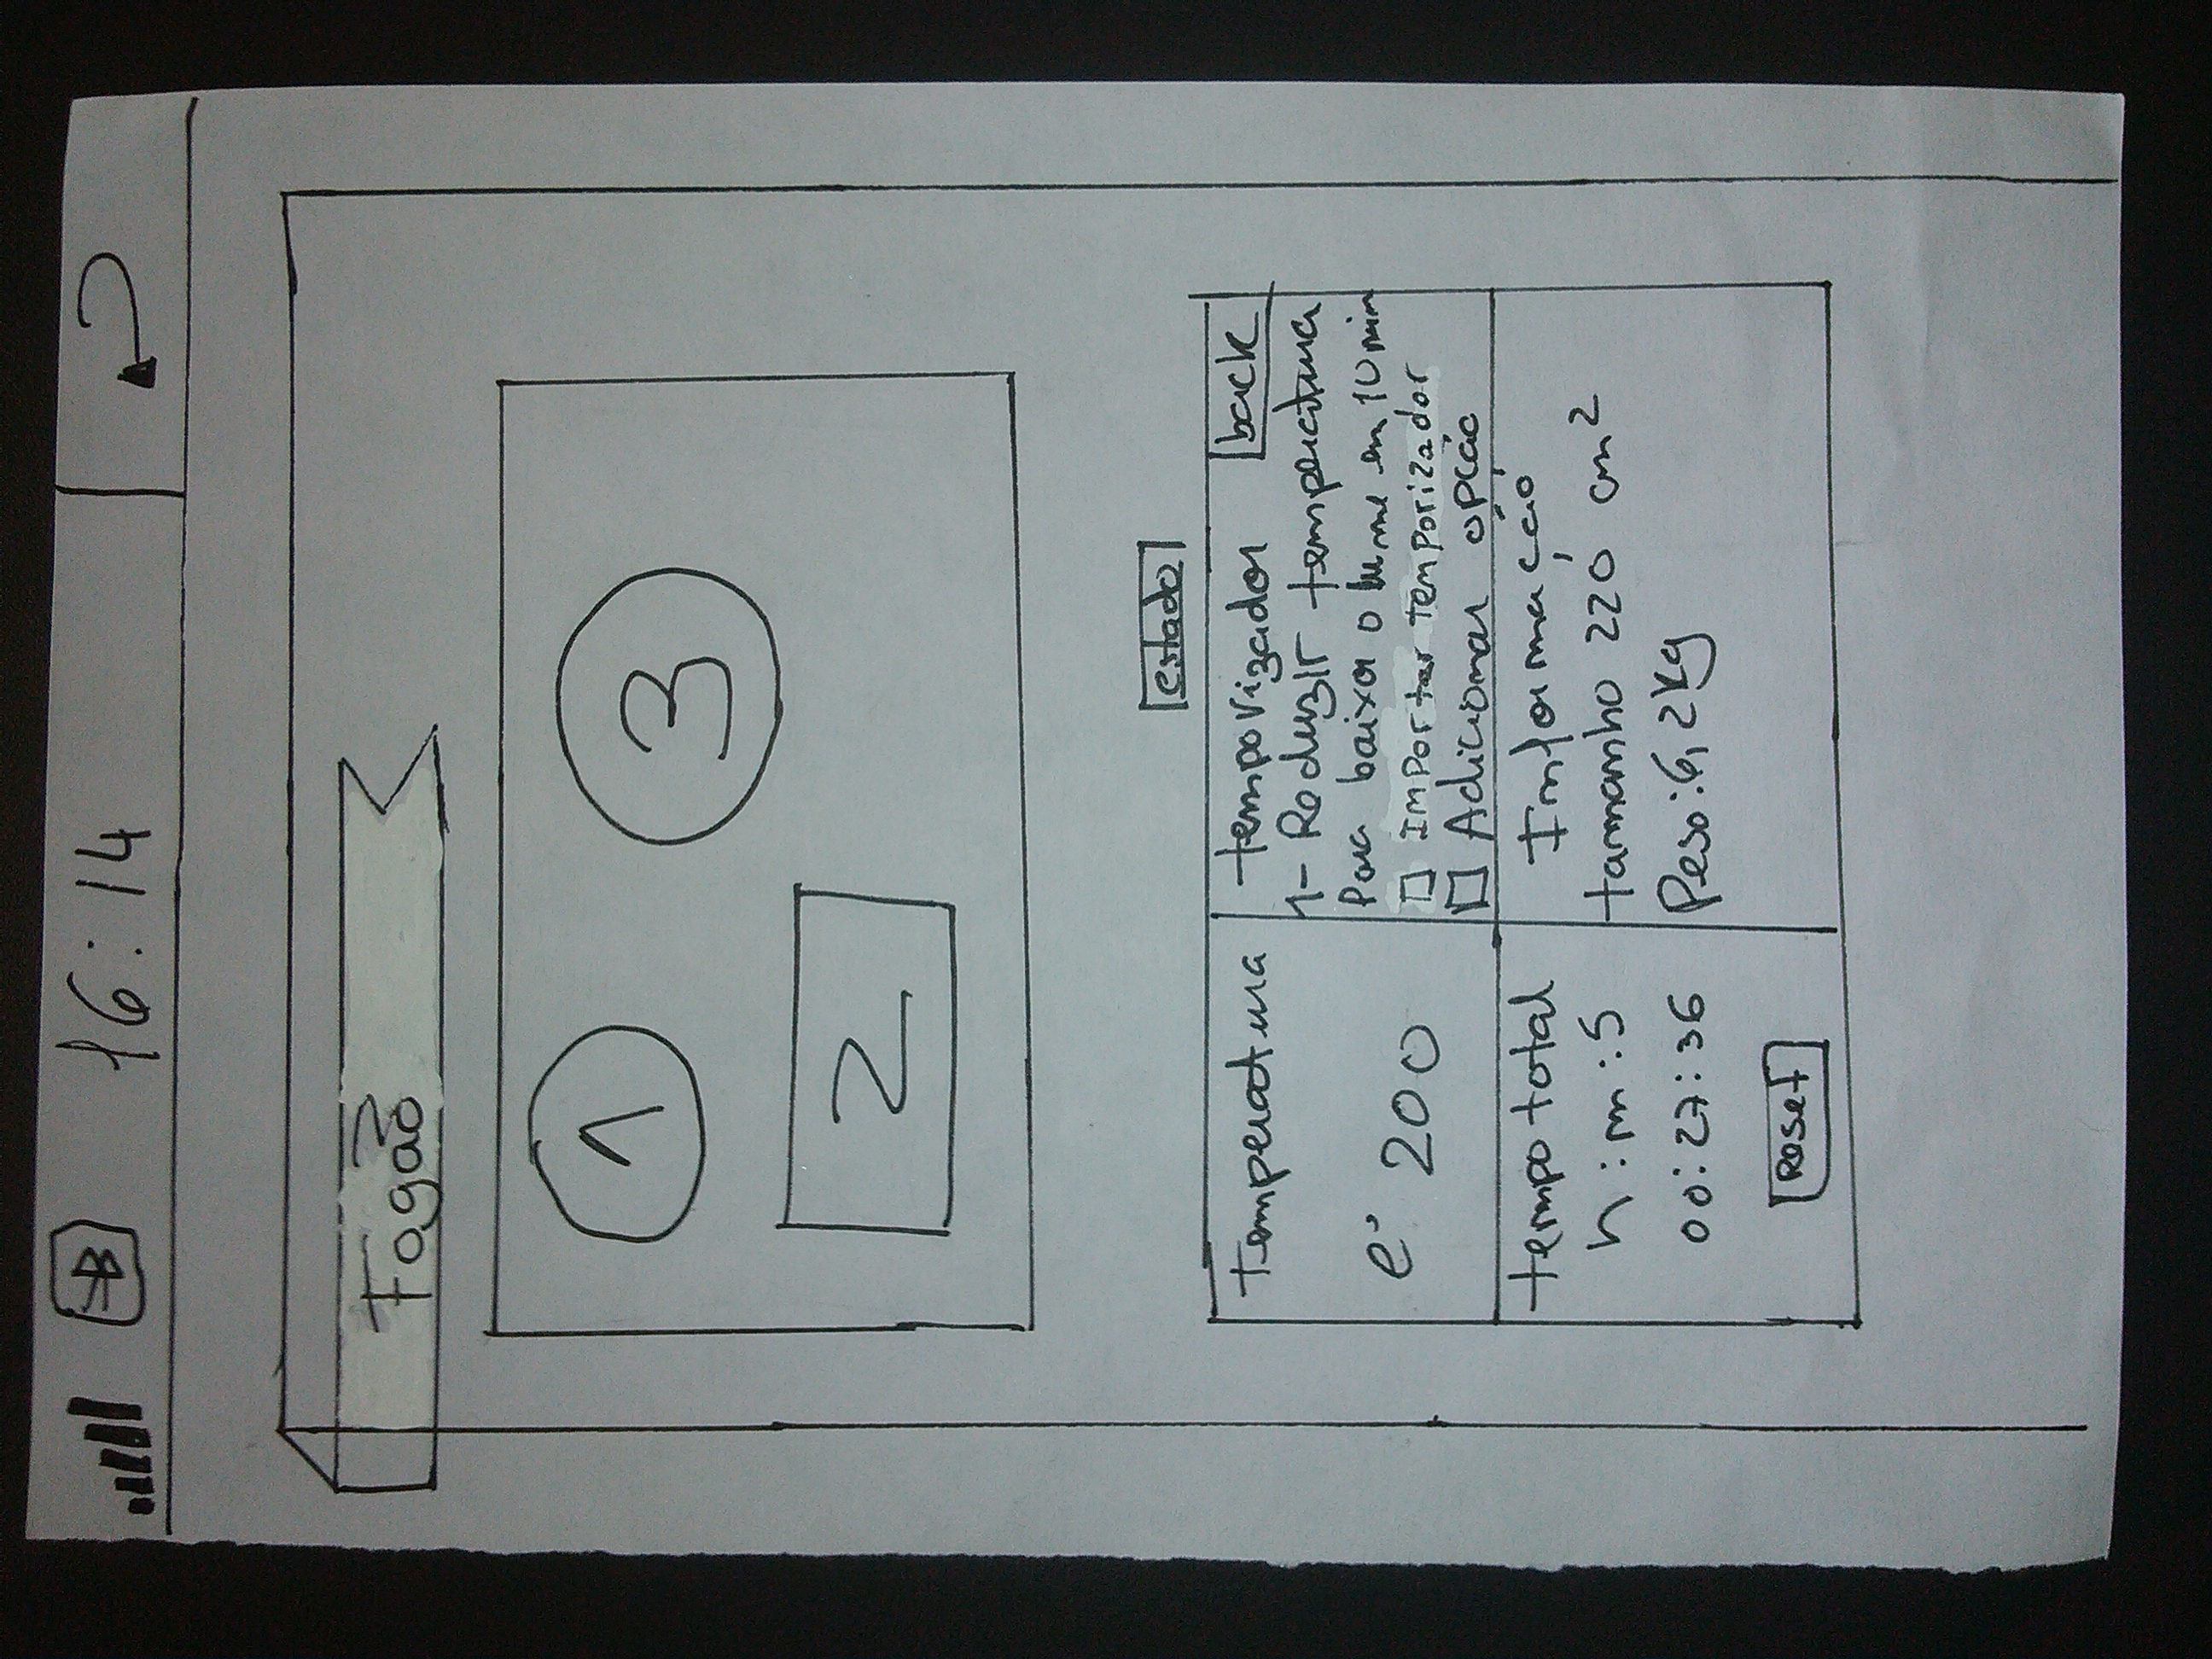 16:14
Fogão
1
3
2
estado
temperatura
eº 200
temporizador
back
1- Reduzir temperatura
para baixar o lume em 10 min
Importar temporizador
Adicionar opção
tempo total
h : m : s
00:27:36
Reset
Informação
tamanho 220 cm²
Peso: 6,2 kg